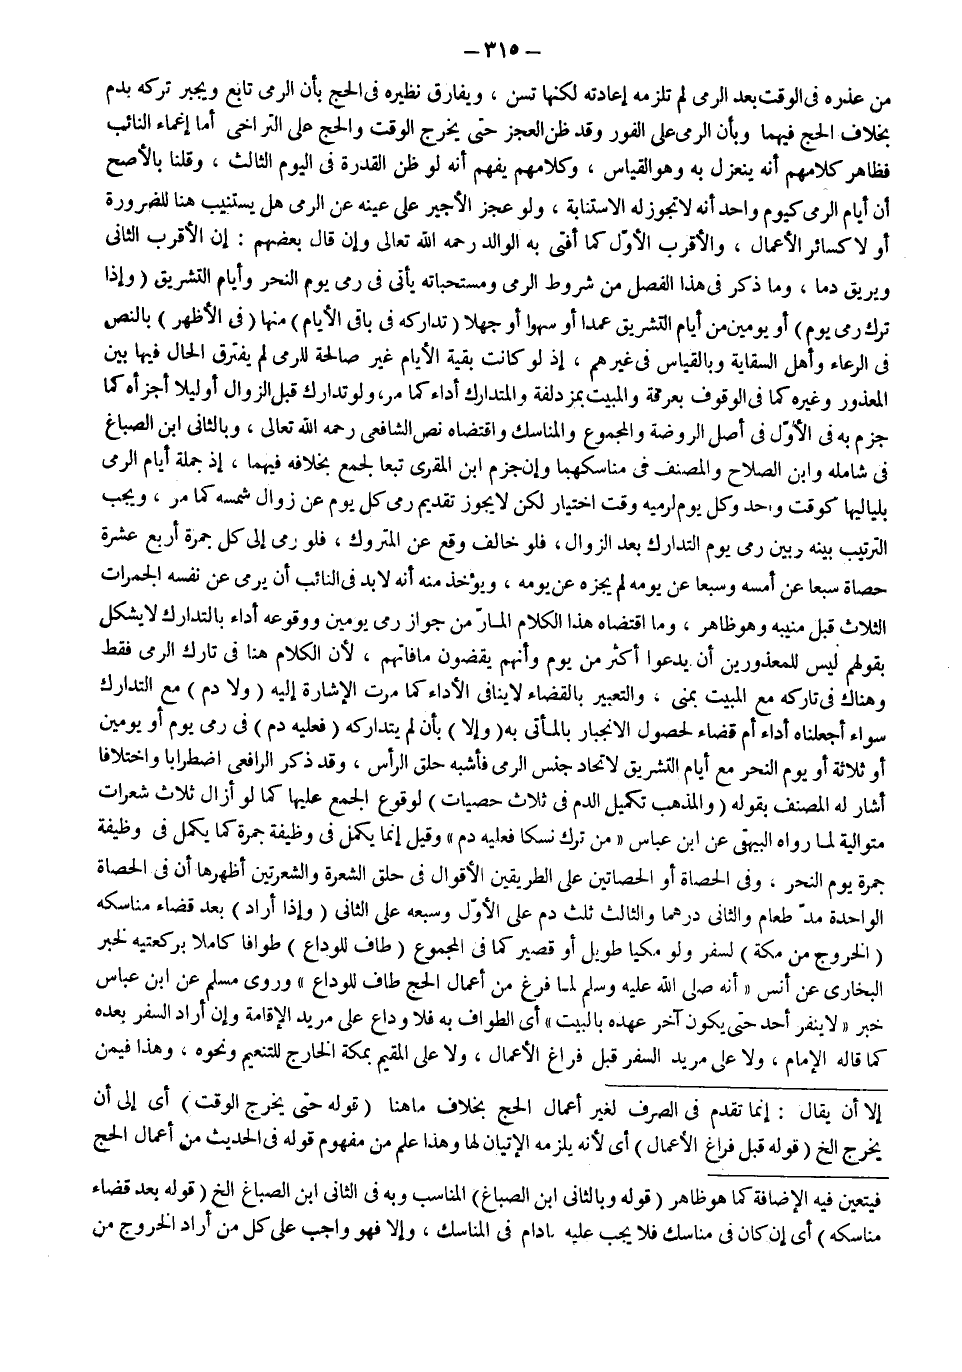 — ٣١٥ —
من عذره فى الوقت بعد الرمى لم تلزمه إعادته لكنها تسن ، ويفارق نظيره فى الحج بأن الرمى تابع ويجبر تركه بدم
بخلاف الحج فيهما وبأن الرمى على الفور وقد ظن العجز حتى يخرج الوقت والحج على التراخى أما إغماء النائب
فظاهر كلامهم أنه ينعزل به وهو القياس ، وكلامهم يفهم أنه لو ظن القدرة فى اليوم الثالث ، وقلنا بالأصح
أن أيام الرمى كيوم واحد أنه لا تجوز له الاستنابة ، ولو عجز الأجير على عينه عن الرمى هل يستنيب هنا للضرورة
أو لا كسائر الأعمال ، والأقرب الأوّل كما أفتى به الوالد رحمه الله تعالى وإن قال بعضهم : إن الأقرب الثانى
ويريق دما ، وما ذكر فى هذا الفصل من شروط الرمى ومستحباته يأتى فى رمى يوم النحر وأيام التشريق ( وإذا
ترك رمى يوم ) أو يومين من أيام التشريق عمدا أو سهوا أو جهلا ( تداركه فى باقى الأيام ) منها ( فى الأظهر ) بالنص
فى الرعاء وأهل السقاية وبالقياس فى غيرهم ، إذ لو كانت بقية الأيام غير صالحة للرمى لم يفترق الحال فيها بين
المعذور وغيره كما فى الوقوف بعرفة والمبيت بمزدلفة والمتدارك أداء كما مر، ولو تدارك قبل الزوال أو ليلا أجزأه كما
جزم به فى الأوّل فى أصل الروضة والمجموع والمناسك واقتضاه نص الشافعى رحمه الله تعالى ، وبالثانى ابن الصباغ
فى شامله وابن الصلاح والمصنف فى مناسكهما وإن جزم ابن المقرى تبعا لجمع بخلافه فيهما ، إذ جملة أيام الرمى
بلياليها كوقت واحد وكل يوم لرميه وقت اختيار لكن لا يجوز تقديم رمى كل يوم عن زوال شمسه كما مر ، ويجب
الترتيب بينه وبين رمى يوم التدارك بعد الزوال، فلو خالف وقع عن المتروك ، فلو رمى إلى كل جمرة أربع عشرة
حصاة سبعا عن أمسه وسبعا عن يومه لم يجزه عن يومه ، ويؤخذ منه أنه لابد فى النائب أن يرمى عن نفسه الجمرات
الثلاث قبل منيبه وهو ظاهر ، وما اقتضاه هذا الكلام المارّ من جواز رمى يومين ووقوعه أداء بالتدارك لا يشكل
بقولهم ليس للمعذورين أن يدعوا أكثر من يوم وأنهم يقضون مافاتهم ، لأن الكلام هنا فى تارك الرمى فقط
وهناك فى تاركه مع المبيت بمنى ، والتعبير بالقضاء لاينافى الأداء كما مرت الإشارة إليه ( ولا دم ) مع التدارك
سواء أجعلناه أداء أم قضاء لحصول الانجبار بالمأتى به ( وإلا ) بأن لم يتداركه ( فعليه دم ) فى رمى يوم أو يومين
أو ثلاثة أو يوم النحر مع أيام التشريق لاتحاد جنس الرمى فأشبه حلق الرأس ، وقد ذكر الرافعى اضطرابا واختلافا
أشار له المصنف بقوله ( والمذهب تكميل الدم فى ثلاث حصيات ) لوقوع الجمع عليها كما لو أزال ثلاث شعرات
متوالية لما رواه البيهقى عن ابن عباس « من ترك نسكا فعليه دم » وقيل إنما يكمل فى وظيفة جمرة كما يكمل فى وظيفة
جمرة يوم النحر ، وفى الحصاة أو الحصاتين على الطريقين الأقوال فى حلق الشعرة والشعرتين أظهرها أن فى الحصاة
الواحدة مدّ طعام والثانى درهما والثالث ثلث دم على الأوّل وسبعه على الثانى ( وإذا أراد ) بعد قضاء مناسكه
( الخروج من مكة ) لسفر ولو مكيا طويل أو قصير كما فى المجموع ( طاف للوداع ) طوافا كاملا بركعتيه لخبر
البخارى عن أنس « أنه صلى الله عليه وسلم لما فرغ من أعمال الحج طاف للوداع » وروى مسلم عن ابن عباس
خبر « لاينفر أحد حتى يكون آخر عهده بالبيت » أى الطواف به فلا وداع على مريد الإقامة وإن أراد السفر بعده
كما قاله الإمام ، ولا على مريد السفر قبل فراغ الأعمال ، ولا على المقيم بمكة الخارج للتنعيم ونحوه ، وهذا فيمن
إلا أن يقال : إنما تقدم فى الصرف لغير أعمال الحج بخلاف ماهنا ( قوله حتى يخرج الوقت ) أى إلى أن
يخرج الخ ( قوله قبل فراغ الأعمال ) أى لأنه يلزمه الإتيان لها وهذا علم من مفهوم قوله فى الحديث من أعمال الحج
فيتعين فيه الإضافة كما هو ظاهر ( قوله وبالثانى ابن الصباغ) المناسب وبه فى الثانى ابن الصباغ الخ ( قوله بعد قضاء
مناسكه ) أى إن كان فى مناسك فلا يجب عليه مادام فى المناسك ، وإلا فهو واجب على كل من أراد الخروج من